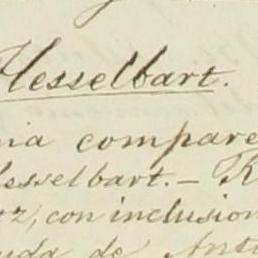 Hesselbart.
nia compare
esselbart.— R
z, con inclusion
uda de Anto